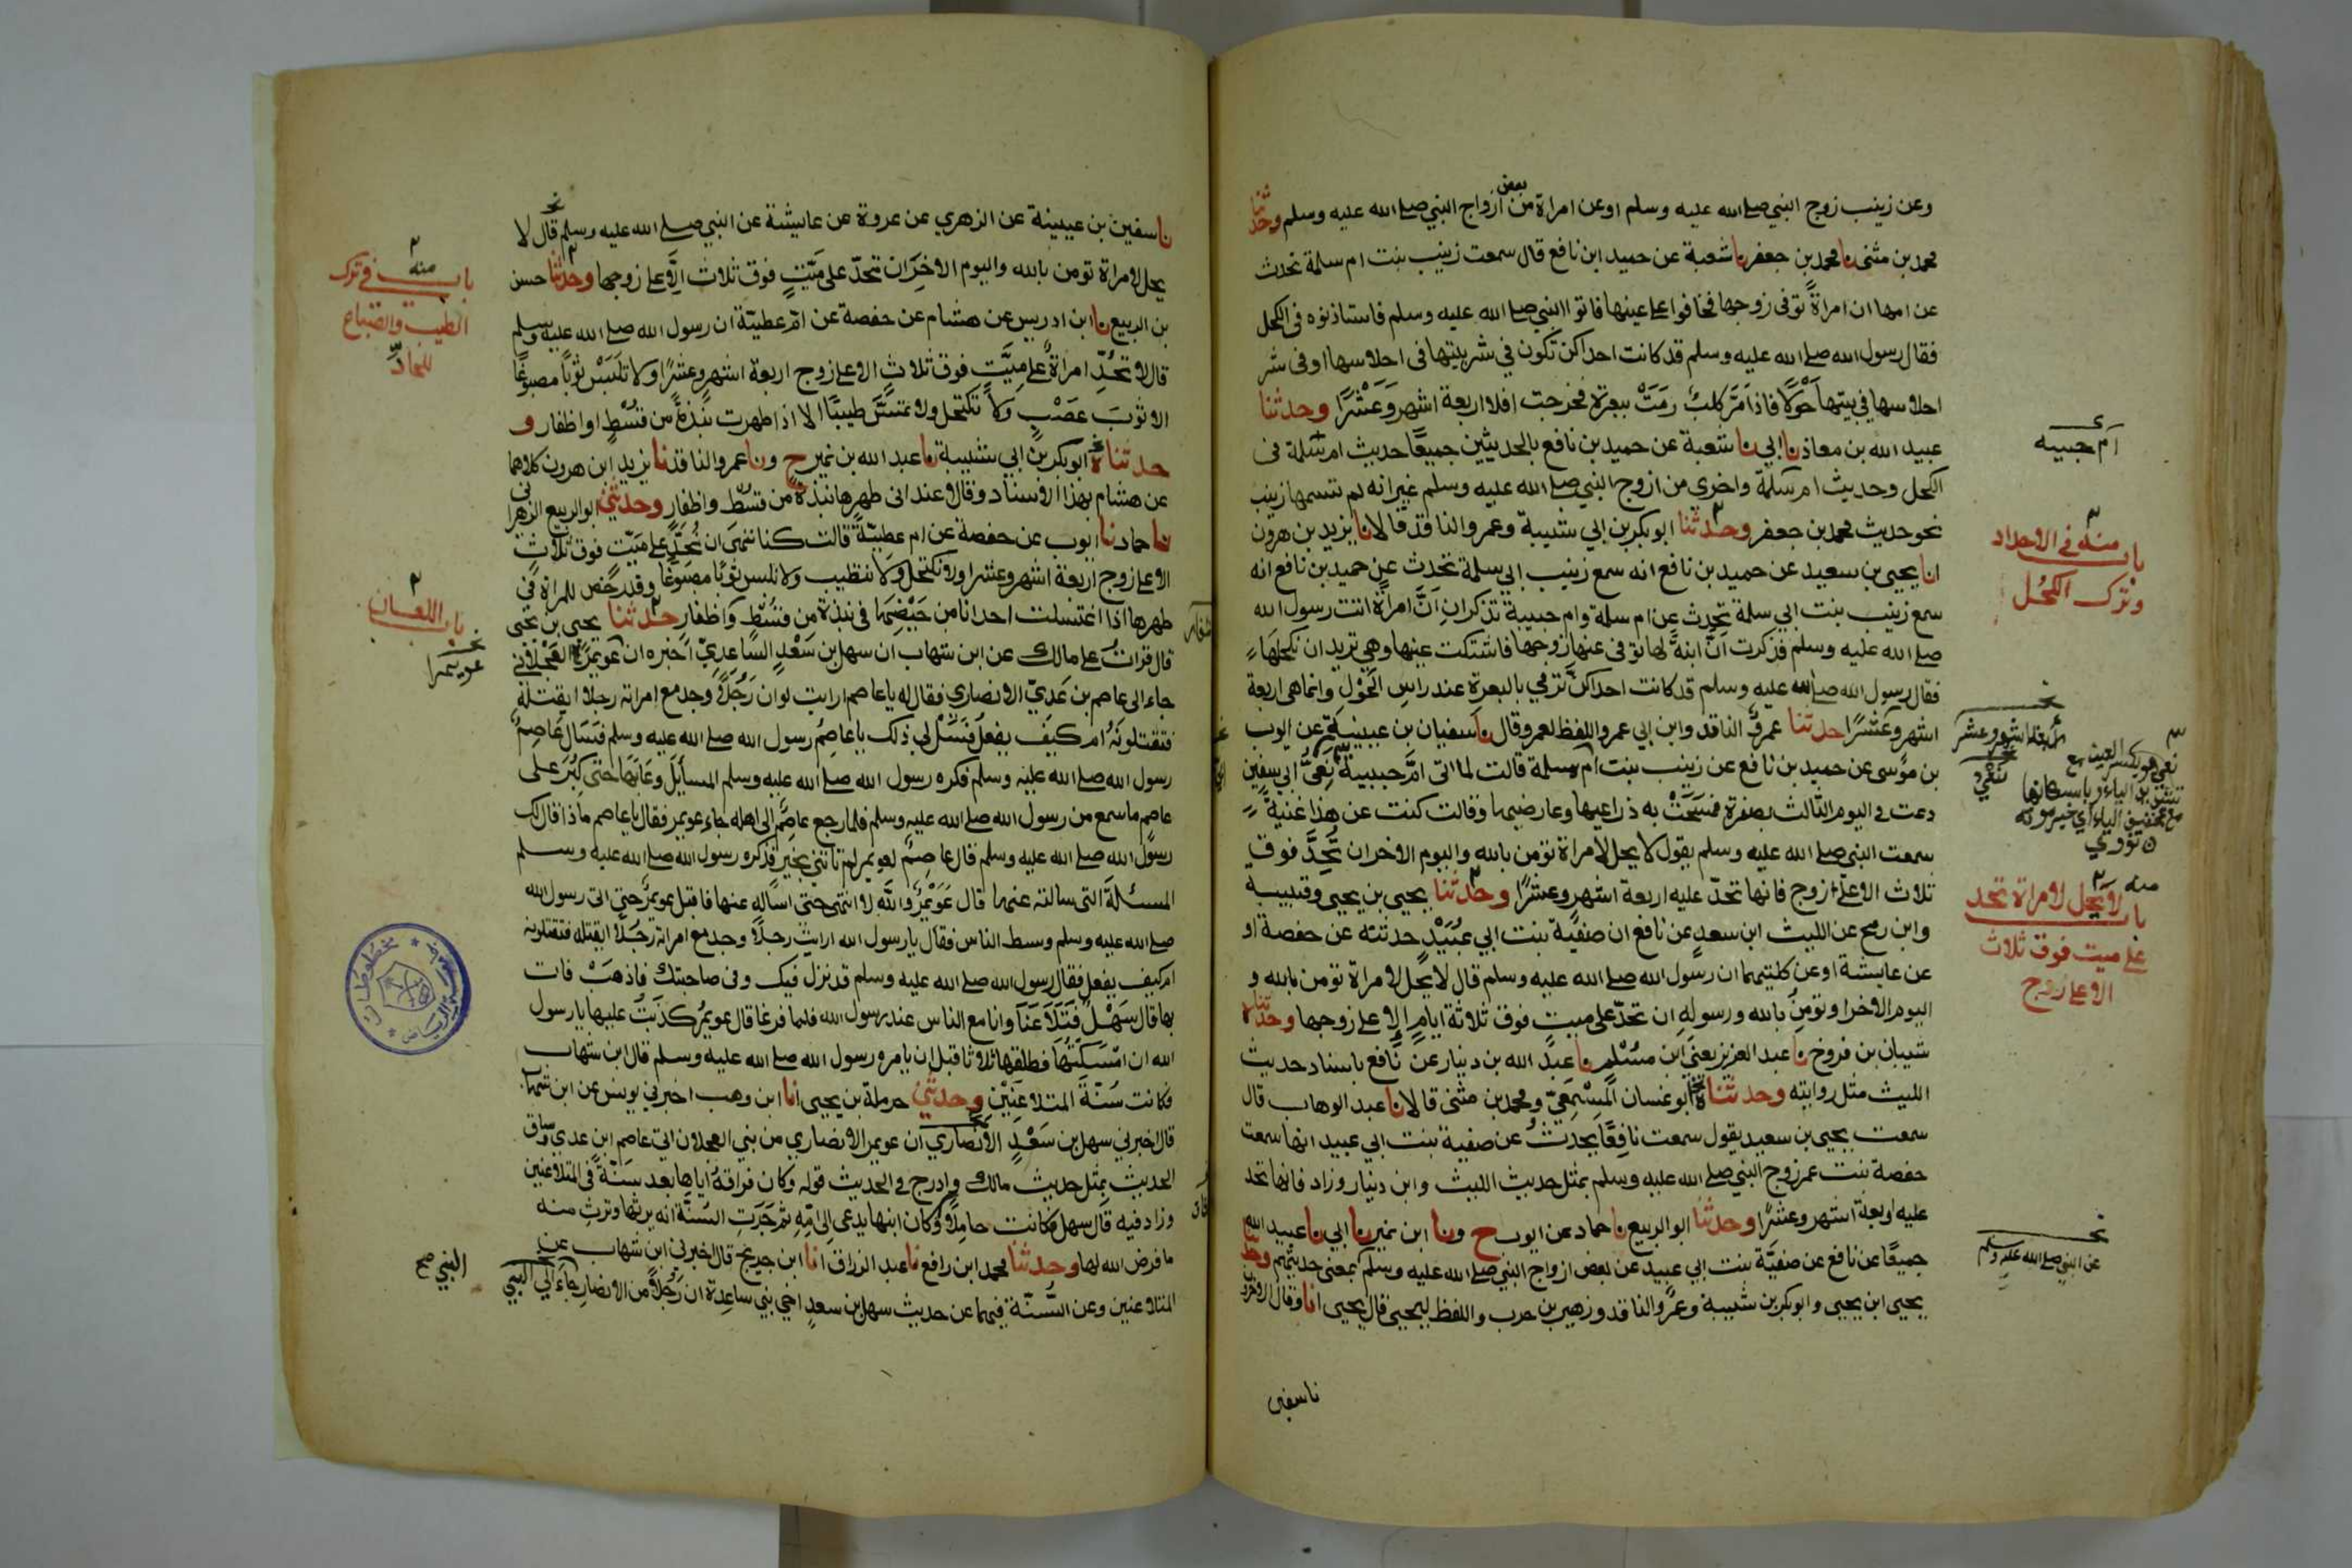 وعن زينب زوج النبي صلى الله عليه وسلم او عن امراة من بعض ازواج النبي صلى الله عليه وسلم وحدثنا
محمد بن مثنى نا محمد بن جعفر نا شعبة عن حميد ابن نافع قال سمعت زينب بنت ام سلمة تحدث
عن امها ان امراةً توفى زوجها فخافوا على عينها فاتوا النبي صلى الله عليه وسلم فاستاذنوه فى الكحل
فقال رسول الله صلى الله عليه وسلم قد كانت احداكن تكون في شر بيتها فى احلاسها او فى شر
احلاسها في بيتها حَوْلًا فاذا مَرَّ كلبٌ رمَتْ ببعرة فخرجت افلا اربعة اشهر وعَشْرًا وحدثنا
عبيد الله بن معاذ نا ابي نا شعبة عن حميد بن نافع بالحديثين جميعًا حديث ام سلمة فى
الكحل وحديث ام سلمة واخرى من ازوج النبي صلى الله عليه وسلم غير انه لم تسمها زينب
نحو حديث محمد بن جعفر وحدثنا ابو بكر بن ابي شيبة وعمرو الناقد قالا نا يزيد بن هرون
انا يحيى بن سعيد عن حميد بن نافع انه سمع زينب ابي سلمة تحدث عن حميد بن نافع انه
سمع زينب بنت ابي سلمة تحدث عن ام سلمة وام حبيبة تذكران اَنَّ امراة اتت رسول الله
صلى الله عليه وسلم فذكرت انَّ ابنةً لها توفى عنها زوجها فاشتكت عينها وهي تريد ان تكحلها
فقال رسول الله صلى الله عليه وسلم قد كانت احداكنَّ ترمي بالبعرة عند راس الحَوْل وانما هى اربعة
اشهر وعَشْرًا حدثنا عمرو الناقد وابن ابي عمر واللفظ لعمرو قال نا سفيان بن عيينة عن ايوب
بن موسى عن حميد بن نافع عن زينب بنت ام سلمة قالت لما اتى امَّ حبيبة نَعِيُّ ابي سفين
دعت في اليوم الثالث بصفرة فمسَحَتْ به ذراعيها وعارضيها وقالت كنت عن هذا غنيةً
سمعت النبي صلى الله عليه وسلم يقول لا يحل لامراة تؤمن بالله واليوم الاخر ان تُحِدَّ فوق
ثلاث الا على زوج فانها تحدّ عليه اربعة اشهر وعشرًا وحدثنا يحيى بن يحيى وقتيبة
وابن رمح عن الليث ابن سعد عن نافع ان صفيَّة بنت ابي عُبَيْدٍ حدثته عن حفصة او
عن عايشة او عن كلتيهما ان رسول الله صلى الله عليه وسلم قال لا يحل لامراة تؤمن بالله و
اليوم الاخر او تؤمن بالله ورسوله ان تحدّ على ميت فوق ثلاثة ايام الا على زوجها وحدثناه
شيبان بن فروخ نا عبد العزيز يعني ابن مسْلم نا عبد الله بن دينار عن نافع باسناد حديث
الليث مثل روايته وحدثناه ابو غسان المِسْمَعِيّ ومحمد بن مثنى قالا نا عبد الوهاب قال
سمعت يحيى بن سعيد يقول سمعت نافعًا يحدثُ عن صفية بنت ابي عبيد انها سمعت
حفصة بنت عمر زوج النبي صلى الله عليه وسلم بمثل حديث الليث وابن دينار وزاد فانها تحد
عليه اربعة اشهر وعشرًا وحدثنا ابو الربيع نا حماد عن ايوب ح ونا ابن نمير نا ابي نا عبيد الله
جميعًا عن نافع عن صفيَّة بنت ابي عبيد عن بعض ازواج النبي صلى الله عليه وسلم بمعنى حديثهم وحدثنا
يحيى ابن يحيى وابو بكر بن شيبة وعمرو الناقد وزهير بن حرب واللفظ ليحيى قال يحيى انا وقال الاخرون
نا سفين
ام حبيبه
باب منه في الاحداد
وترك الكُحْل
اربعة اشهر وعشر
نعي هو بكسر العين مع
تشديد الياء وباسكانها
مع تخفيف الياء اي خبر موته
نووي
منه
باب لا يحل لامراة تحد
على ميت فوق ثلاث
الا على زوج
عن النبي صلى الله عليه وسلم
نا سفين بن عيينة عن الزهري عن عروة عن عايشة عن النبي صلى الله عليه وسلم قال لا
يحل لامراة تومن بالله واليوم الاخر ان تحدّ على ميّتٍ فوق ثلاث الا على زوجها وحدثنا حسن
بن الربيع نا ابن ادريس عن هشام عن حفصة عن امّ عطيّة ان رسول الله صلى الله عليه وسلم
قال لا تحُدُّ امراةٌ على ميّتٍ فوق ثلاثٍ الا على زوج اربعة اشهر وعشرًا ولا تلبَسْ ثوبًا مصبوغًا
الا ثوبَ عَصْبٍ ولا تكتحل ولا تمسَّ طيبًا الا اذا طهرت نُبْذةً من قُسْطٍ او اظفار و
حدثناه ابو بكر بن ابي شيبة نا عبد الله بن نمير ح ونا عمرو الناقد نا يزيد ابن هرون كلاهما
عن هشام بهذا الاسناد وقالا عند ادنى طهرها نبذةً من قسْط واظفارٍ وحدثني ابو الربيع الزهراني
نا حماد نا ايوب عن حفصة عن ام عطيّة قالت كنا ننهى ان نُحِدَّ على ميّتٍ فوق ثلاثٍ
الا على زوج اربعة اشهر وعشرا ولا نكتحل ولا نتطيب ولا نلبس ثوبًا مصبوغًا وقد رخص للمراة في
طهرها اذا اغتسلت احدانا من حَيْضِهَا في نبذة من قُسْطٍ واظفار حدثنا يحيى بن يحيى
قال قراتُ على مالك عن ابن شهاب ان سهل بن سَعْدٍ السّاعديّ اخبره ان عويمر العَجْلاني
جاء الى عاصم بن عَديّ الانصاري فقال له يا عاصم ارايت لو ان رَجُلًا وجد مع امراته رجلا ايقتله
فتقتلونَهُ ام كيف يفعل فَسَلْ لي ذلك يا عاصِمُ رسول الله صلى الله عليه وسلم فسَال عَاصِمُ
رسول الله صلى الله عليه وسلم فكره رسول الله صلى الله عليه وسلم المسائل وعَابَهَا حتى كبُرَ على
عاصم ما سمع من رسول الله صلى الله عليه وسلم فلما رجع عاصم الى اهله جاء عويمر فقال يا عاصم ماذا قال لك
رسول الله صلى الله عليه وسلم قال عاصِمٌ لعويمر لم تاتني بخيرٍ قد كره رسول الله صلى الله عليه وسلم
المسئلة التى سالته عنها قال عُوَيْمِرٌ والله لا انتهى حتى اساله عنها فاقبل عويمرٌ حتى اتى رسول الله
صلى الله عليه وسلم وسط الناس فقال يا رسول الله ارايتَ رجلًا وجد مع امراته رجُلًا ايقتله فتقتلونه
ام كيف يفعل فقال رسول الله صلى الله عليه وسلم قد نزل فيك وفى صاحبتك فاذهَبْ فات
بها قال سَهْلٌ فتَلَاعَنَا وانا مع الناس عند رسول الله فلما فرغا قال عويمرٌ كذَبْتُ عليها يا رسول
الله ان امْسَكْتُهَا فطلقها ثلاثا قبل ان يامره رسول الله صلى الله عليه وسلم قال ابن شهاب
فكانت سُنّةَ المتلاعنَيْنِ وحدثني حرملة بن يحيى انا ابن وهب اخبرني يونس عن ابن شهاب
قال اخبرني سهل بن سَعْدٍ الانصاري ان عويمر الانصاري من بني العجلان اتى عاصم ابن عدي وساق
الحديث بمثل حديث مالك وادرج في الحديث قوله وكان فراقهُ اياها بعد سُنّةً في المتلاعنين
وزاد فيه قال سهل فكانت حاملًا وكان ابنها يدعى الى امّهِ ثم جَرَتِ السُنّة انه يرثها وترث منه
ما فرض الله لها وحدثنا محمد ابن رافع نا عبد الرزاق انا ابن جريج قال اخبرني ابن شهاب عن
المتلاعنين وعن السُّنّة فيهما عن حديث سهل بن سعدٍ اخي بني ساعدة ان رَجُلًا من الانصار جاء الى النبي
باب منه في ترك
الطيب والصباغ
للحادّ
باب اللعان
عويمرا
النبي صح